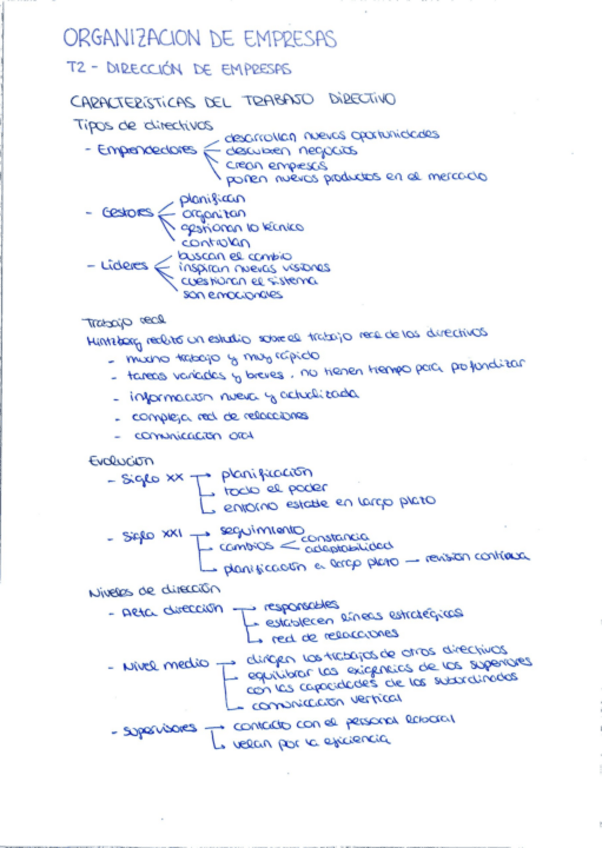 ORGANIZACION DE EMPRESAS
T2 - DIRECCIÓN DE EMPRESAS
CARACTERÍSTICAS DEL TRABAJO DIRECTIVO
Tipos de directivos
- Emprendedores
desarrollan nuevas oportunidades
descubren negocios
crean empresas
ponen nuevos productos en el mercado
- Gestores
planifican
organizan
gestionan lo técnico
controlan
- Líderes
buscan el cambio
inspiran nuevas visiones
cuestionan el sistema
son emocionales
Trabajo real
Mintzberg realizó un estudio sobre el trabajo real de los directivos
- mucho trabajo y muy rápido
- tareas variadas y breves. no tienen tiempo para profundizar
- información nueva y actualizada
- compleja red de relacciones
- comunicación oral
Evolución
- Siglo XX → planificación
todo el poder
entorno estable en largo plazo
- Siglo XXI → seguimiento
cambios < constancia
adaptabilidad
planificación a largo plazo — revisión continua
Niveles de dirección
- Alta dirección → responsables
establecen líneas estratégicas
red de relacciones
- Nivel medio → dirigen los trabajos de otros directivos
equilibrar las exigencias de los superiores
con las capacidades de los subordinados
comunicación vertical
- Supervisores → contacto con el personal laboral
velan por la eficiencia